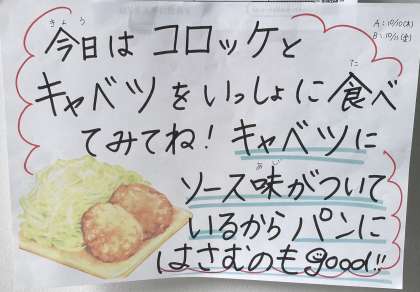 きょう
今日は コロッケと
A:10/10(木)
た
キャベツをいっしょに食べ
てみてね! キャベツに
あじ
ソース味がついて
いるから パンに
はさむのもgood!!